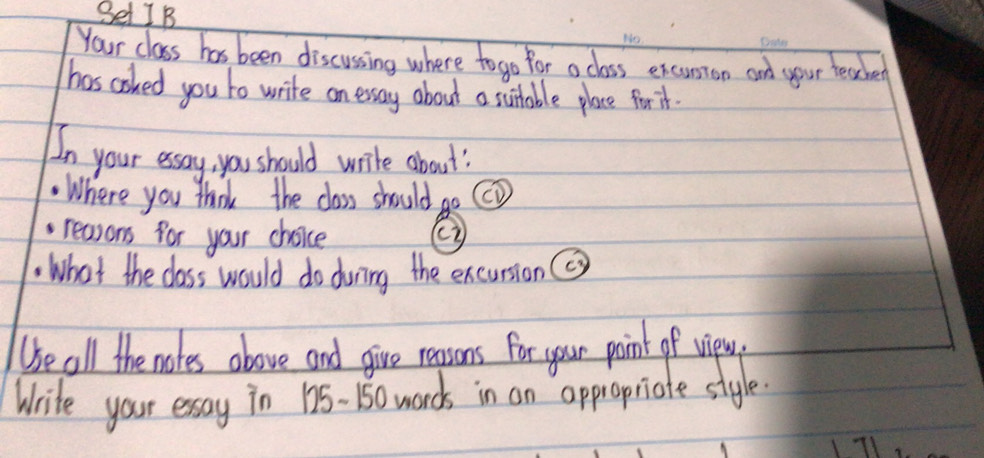 Set 1 B
No. Date
Your class has been discussing where to go for a class excursion and your teacher
has asked you to write an essay about a suitable place for it.
In your essay, you should write about:
• Where you think the class should go C1
• reasons for your choice C2
• What the class would do during the excursion C3
Use all the notes above and give reasons for your point of view.
Write your essay in 125-150 words in an appropriate style.